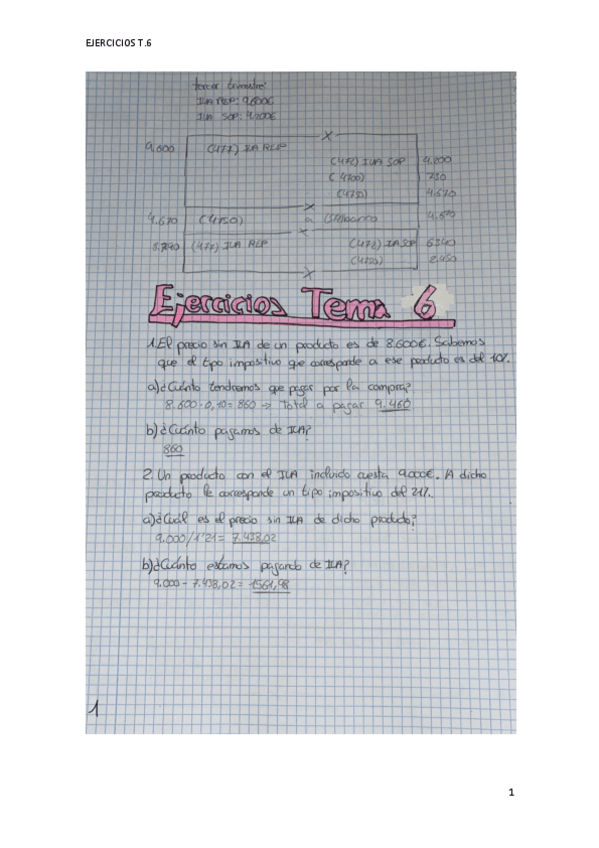 EJERCICIOS T.6
tercer trimestre:
IVA REP: 9.600€
IVA SOP: 4.200€
9.600 (477) IVA REP
(472) IVA SOP
(4700)
(4750) 4.670
4.670 (4750) a (572) banco 4.670
(477) IVA REP (472) IVA SOP
(4750)
Ejercicios Tema 6
1. El precio sin IVA de un producto es de 8.600€. Sabemos
que el tipo impositivo que corresponde a ese producto es del 10%.
a) ¿Cuánto tendremos que pagar por la compra?
8.600 · 0,10 = 860 → Total a pagar 9.460
b) ¿Cuánto pagamos de IVA?
860
2. Un producto con el IVA incluido cuesta 9.000€. A dicho
producto le corresponde un tipo impositivo del 21%.
a) ¿Cuál es el precio sin IVA de dicho producto?
9.000/1'21 = 7.438,02
b) ¿Cuánto estamos pagando de IVA?
9.000 - 7.438,02 = 1561,98
1
1